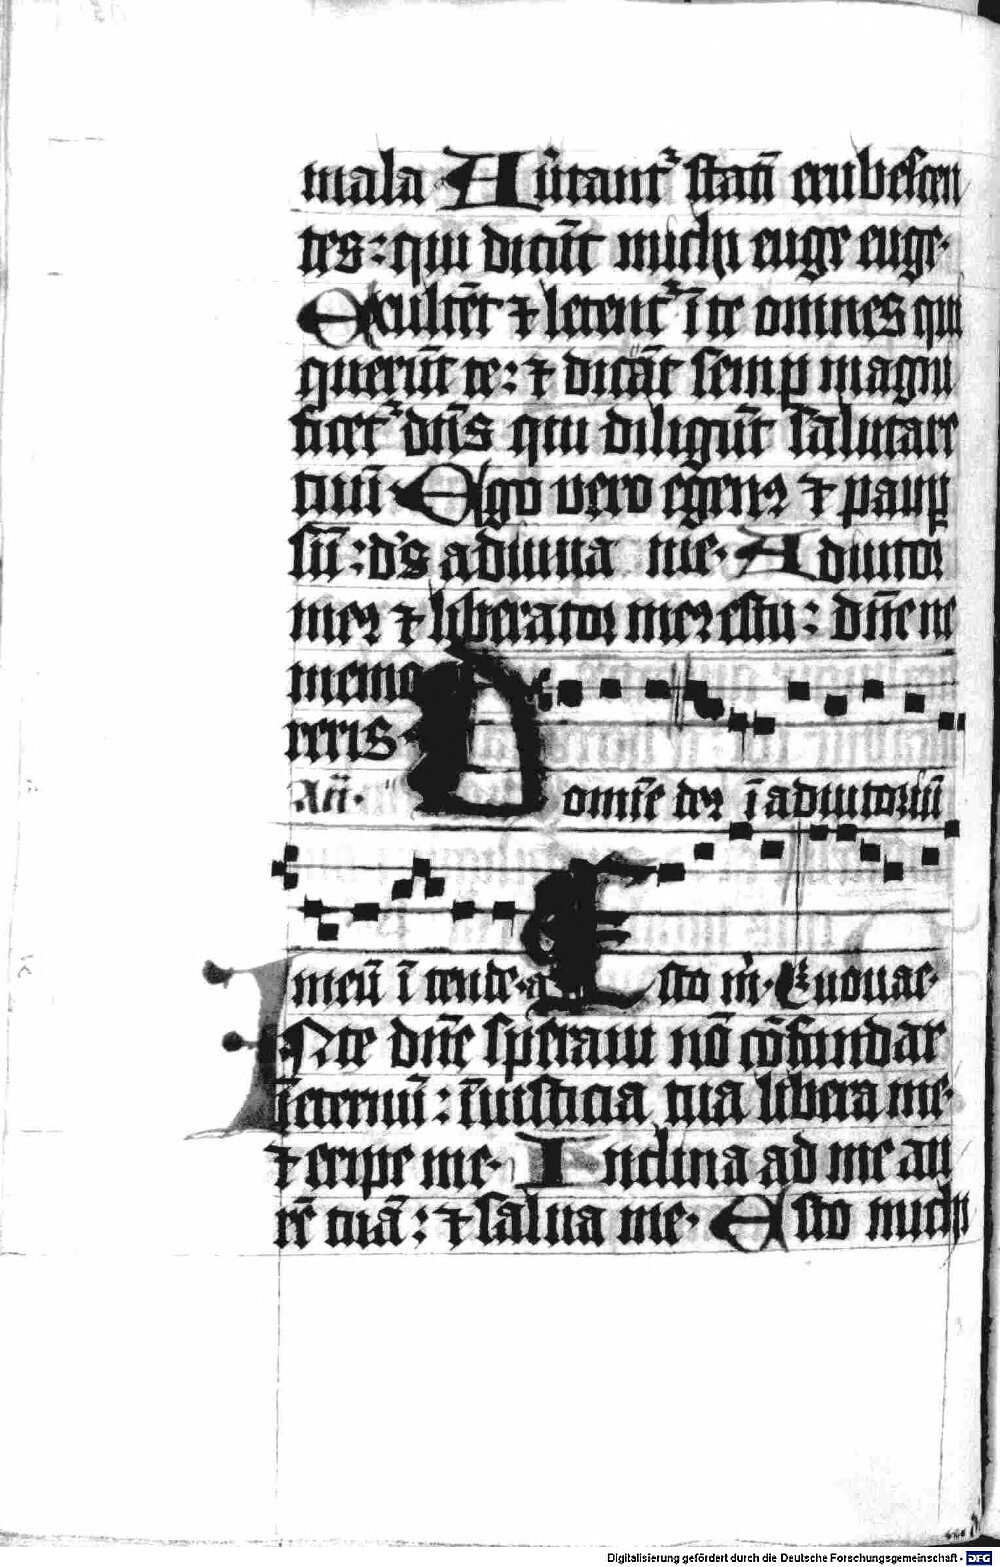 mala Au̾tant᷑ statī erubescen
tes: qui dicūt michi euge euge·
Exultēt ⁊ letent᷑ ī te omnes qui
querūt te: ⁊ dicāt semꝑ magni
ficet᷑ dn̄s qui diligūt salutare
tuū· Ego vero egenꝰ ⁊ pauꝑ
sū: d's adiuua me· Adiutor
meꝰ ⁊ liberator meꝰ es tu: dn̄e ne
memo
reris·
An̄· Domīe deꝰ ī adiutoriū
meū ī tende· Esto m̄· Euouae·
INte dn̄e speraui nō cōfundar
ī eternū: ī iusticia tua libera me·
⁊ eripe me· Inclina ad me au
rē tuā: ⁊ salua me· Esto michi
Digitalisierung gefördert durch die Deutsche Forschungsgemeinschaft - DFG